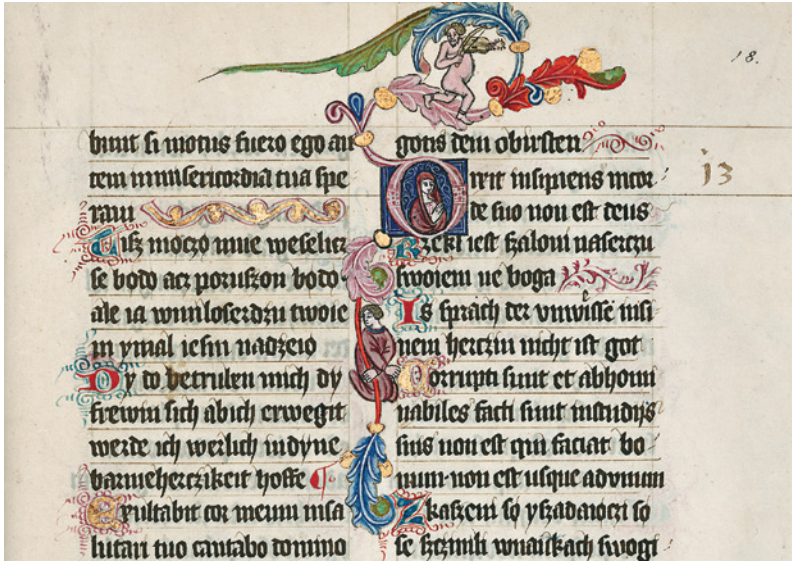 18.
13
bunt si motus fuero ego au
tem in misericordia tua spe
raui
Cisz moczo mne weselicz
se bodo acz poruszon bodo
ale ia wmiloserdzu twoie
m ymal iesm nadzeio
Dy do betruben mich dy
frewin sich abich erwegit
werde ich werlich in dyne
barmeherczikeit hoffe
Exultabit cor meum in sa
lutari tuo cantabo domino
gotis dem obirsten
Dixit insipiens in cor
de suo non est deus
Rzekl iest szalony naserczu
swoiem ne boga
Is sprach der vnwisse in si
nem herczin nicht ist got
Corrupti sunt et abhomi
nabiles facti sunt in studijs
suis non est qui faciat bo
num non est usque ad unum
Zkaszeni so y
so
se